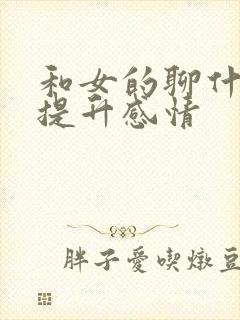 和女的聊什
提升感情
胖子愛喫燉豆